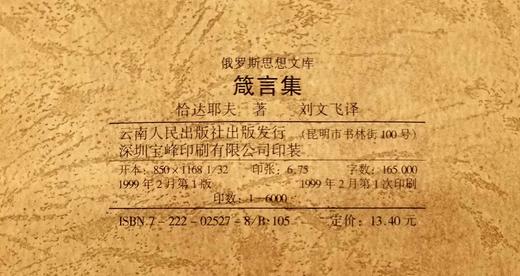 俄罗斯思想文库
箴言集
恰达耶夫 著 刘文飞译
云南人民出版社出版发行 (昆明市书林街100号)
深圳宝峰印刷有限公司印装
开本:850×1168 1/32 印张:6.75 字数:165.000
1999年2月第1版 1999年2月第1次印刷
印数:1—6000
ISBN.7-222-02527-8/B·105 定价:13.40元